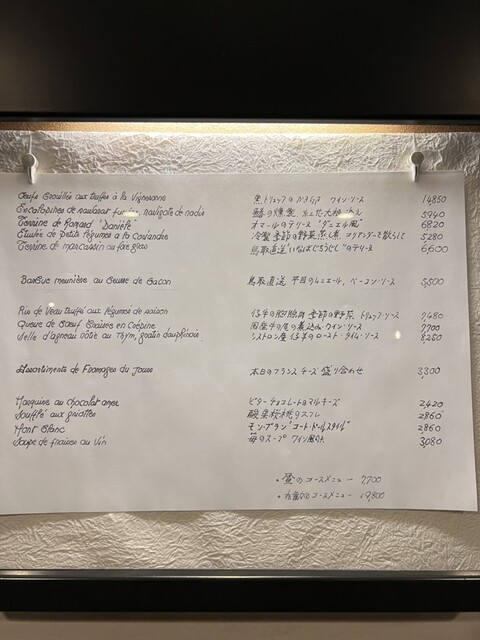 Oeufs Brouillés aux truffes à la Vigneronne 14850
Escalopines de navigate de radis 5940
Terrine de Homard "Danièle" オマールのテリーヌ "ダニエル風" 6820
Etuvée de petits légumes à la Coriandre 冷製 季節の野菜 蒸し煮 コリアンダーを散らして 5280
Terrine de marcassin au foie gras 鳥取直送 "いなばじろうじし"のテリーヌ 6,600
Barbue meunière au Beurre de Bacon 鳥取直送 平目のムニエル、ベーコン・ソース 5,500
Ris de Veau truffé aux légumes de saison 仔牛の胸腺肉 季節の野菜 トリュフ・ソース 9,480
Queue de Boeuf Braisée en Crépine 国産牛の尾の煮込み・ワイン・ソース 7,700
Selle d'agneau rôtie au Thym, gratin dauphinois シストロン産 仔羊のロースト タイム・ソース 8,250
Assortiments de Fromages du Jour 本日のフランス チーズ 盛り合わせ 3,300
Marquise au chocolat amer ビターチョコレートのマルキーズ 2,420
Soufflé aux griottes 酸葉桜桃のスフレ 2860
Mont Blanc モン・ブラン "コート・ドールスタイル" 2,860
Soupe de fraises au Vin 苺のスープ ワイン風味 3,080
・昼のコースメニュー 7,700
コースメニュー 19,800